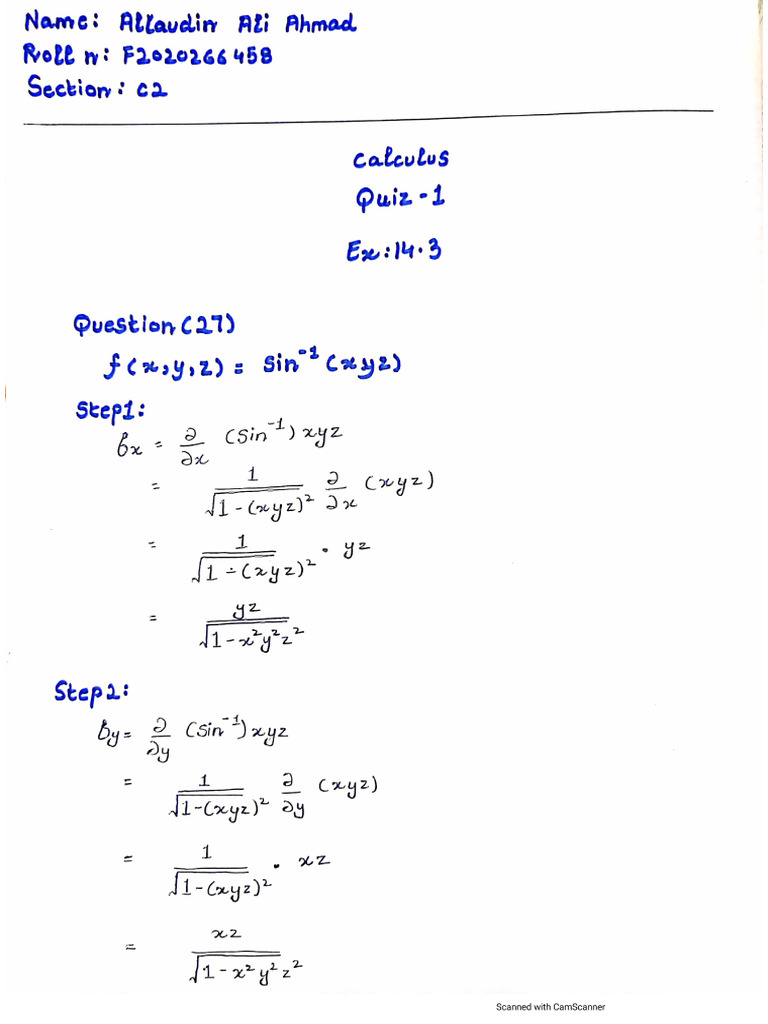 Name: Allaudin Ali Ahmad
Roll n: F2020266458
Section: C2
Calculus
Quiz-1
Ex:14.3
Question(27)
f(x,y,z) = Sin⁻¹(xyz)
Step1:
fx = ∂/∂x (Sin⁻¹)xyz
= 1/√1-(xyz)² ∂/∂x (xyz)
= 1/√1-(xyz)² · yz
= yz/√1-x²y²z²
Step2:
fy = ∂/∂y (Sin⁻¹)xyz
= 1/√1-(xyz)² ∂/∂y (xyz)
= 1/√1-(xyz)² · xz
= xz/√1-x²y²z²
Scanned with CamScanner